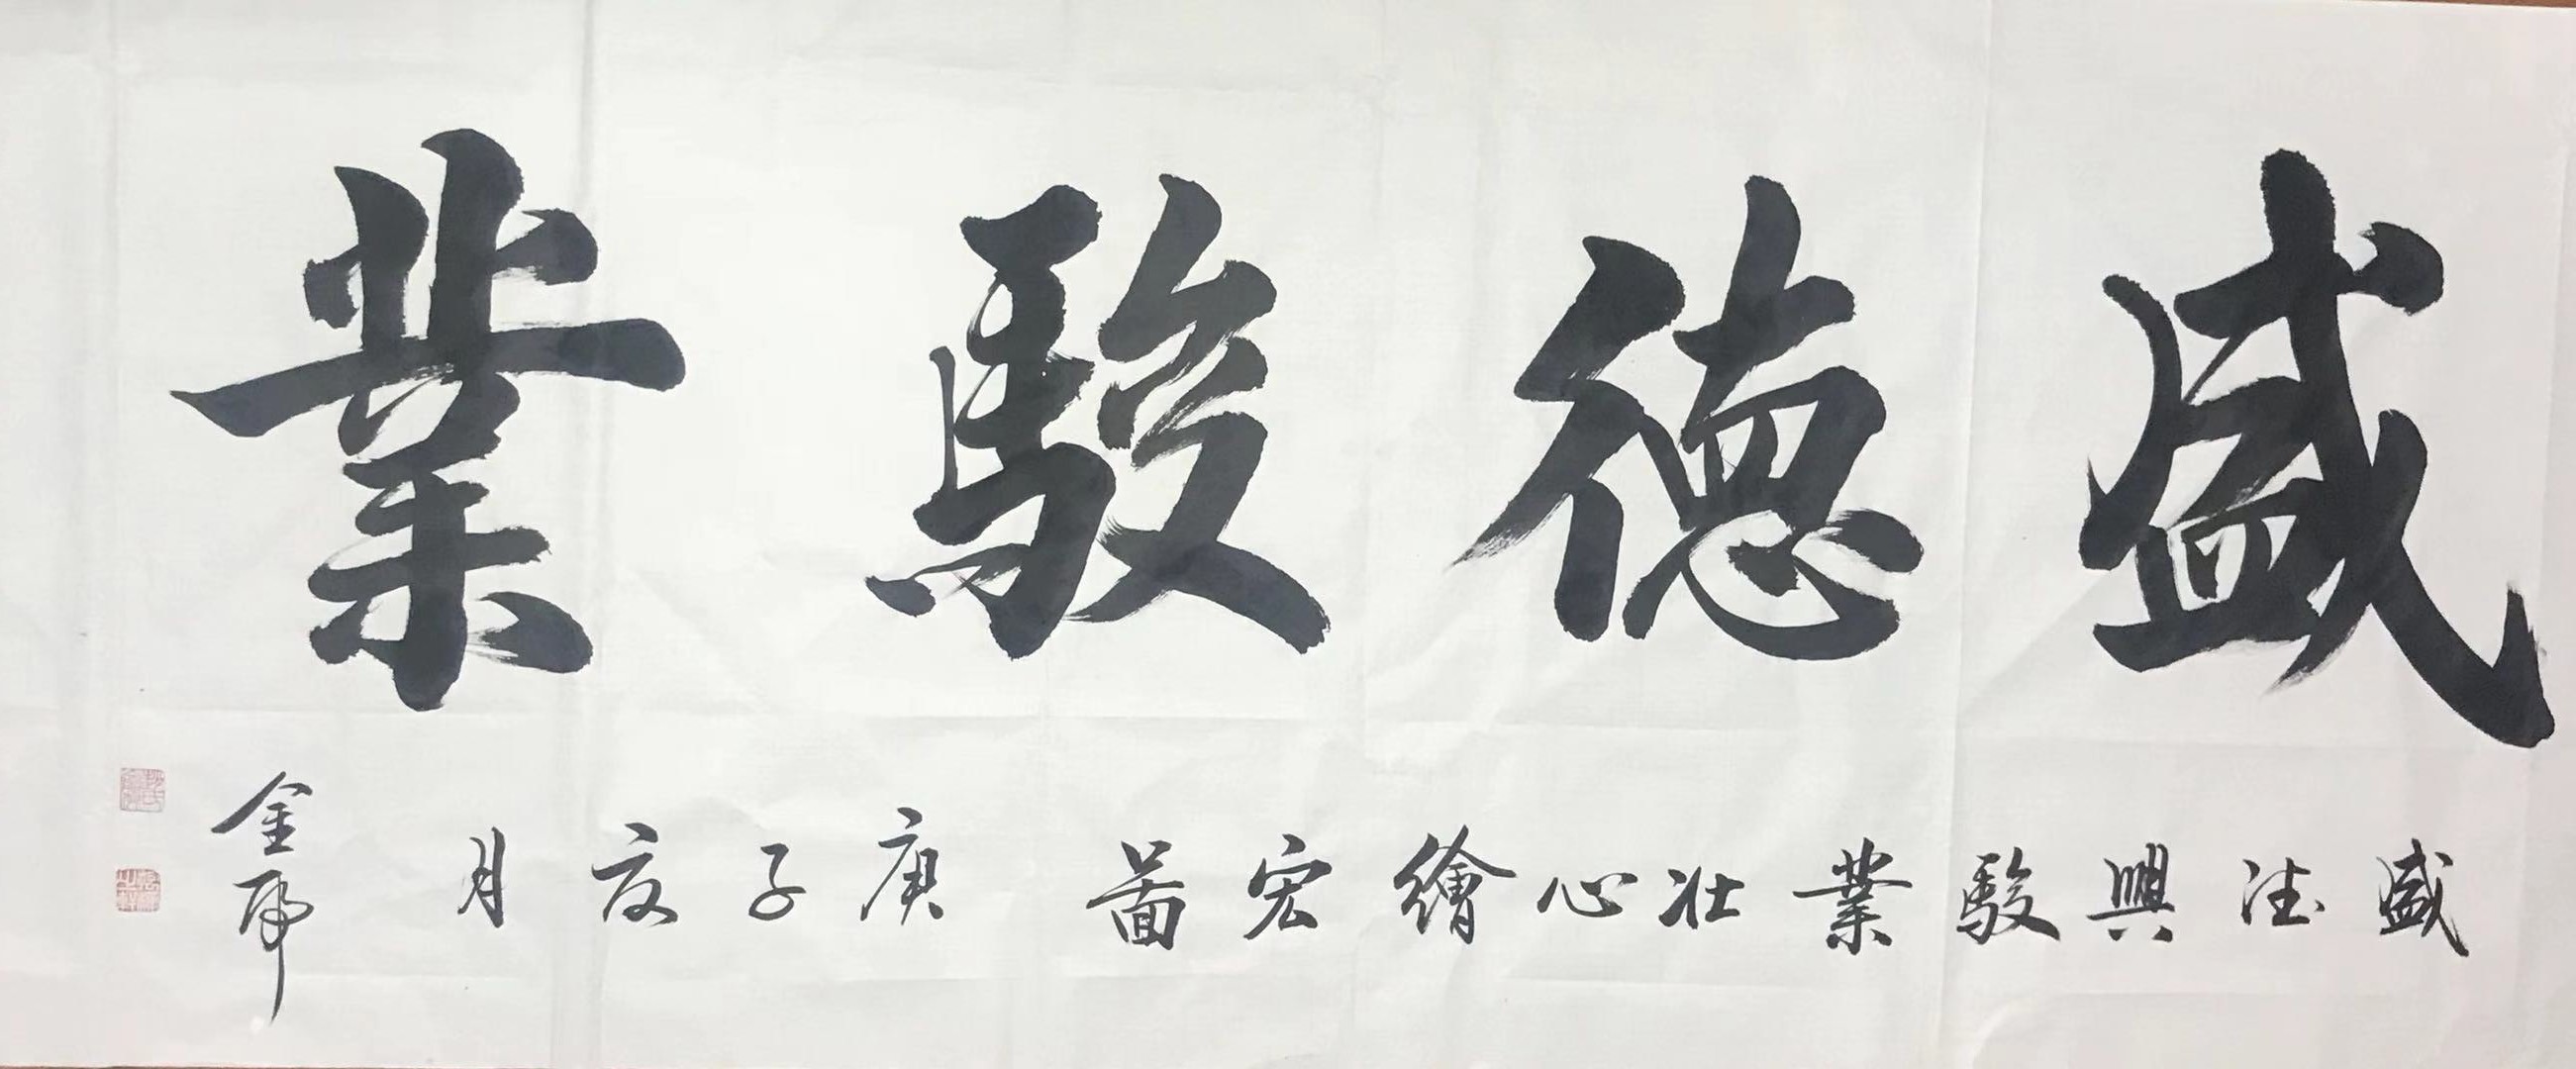 盛德駿業
盛德興駿業壯心繪宏圖 庚子夏月 金虎